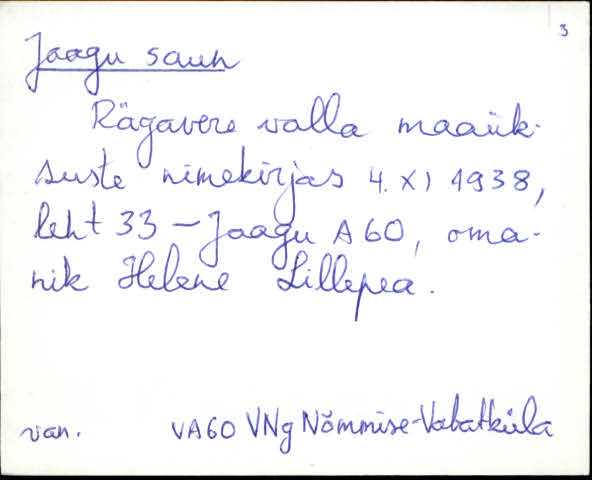 3
Jaagu saun
Rägavere valla maaük-
suste nimekirjas 4. XI 1938,
leht 33 – Jaagu A60, oma-
nik Helene Lillepea.
van. VA60 VNg Nõmmise-Vabatküla